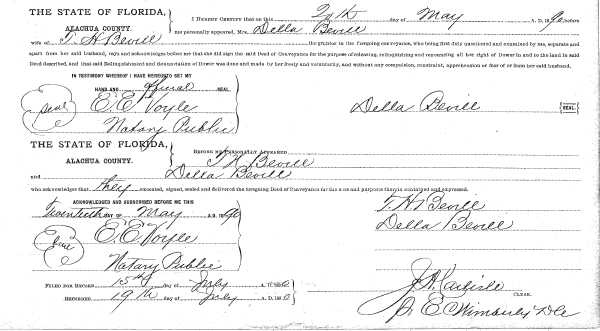 THE STATE OF FLORIDA,
ALACHUA COUNTY.
I HEREBY CERTIFY that on this day of May A. D. 1890, before
me personally appeared, Mrs. Della Bevill
wife of T. H. Bevill the grantor in the foregoing conveyance, who being first duly questioned and examined by me, separate and
apart from her said husband, says and acknowledges before me that she did sign the said Deed of Conveyance for the purpose of releasing, relinquishing and renouncing all her right of Dower in and to the land in said
Deed described, and that said Relinquishment and Renunciation of Dower was done and made by her freely and voluntarily, and without any compulsion, constraint, apprehension or fear of or from her said husband.
IN TESTIMONY WHEREOF I HAVE HEREUNTO SET MY
HAND AND official SEAL
Seal
E. E. Voyle
Notary Public
Della Bevill SEAL.
THE STATE OF FLORIDA,
ALACHUA COUNTY.
BEFORE ME PERSONALLY APPEARED T. H. Bevill
and Della Bevill
who acknowledges that they executed, signed, sealed and delivered the foregoing Deed of Conveyance for the uses and purposes therein contained and expressed.
ACKNOWLEDGED AND SUBSCRIBED BEFORE ME THIS
Twentieth DAY OF May A. D. 1890
Seal
E. E. Voyle
Notary Public
T. H. Bevill
Della Bevill
FILED FOR RECORD 15th day of July A. D. 1890
RECORDED 19th day of July A. D. 1890
J. A. Carlisle
CLERK.
E. Wimberly D.C.